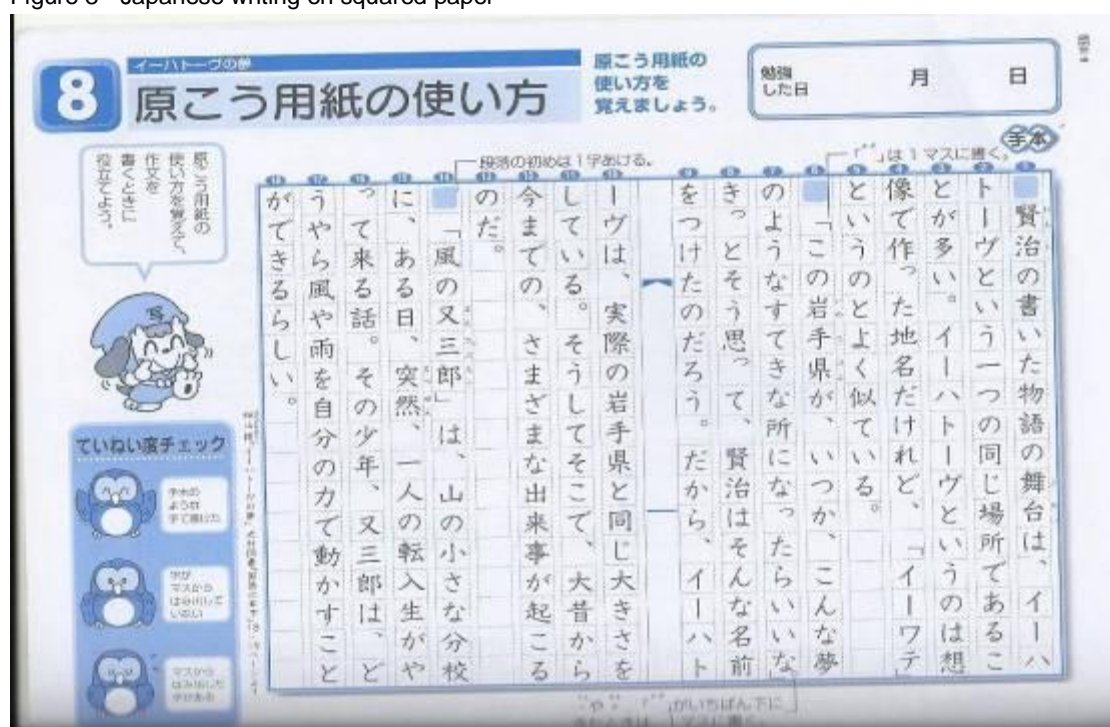 Figure 8 - Japanese writing on squared paper
8
イーハトーヴの夢
原こう用紙の使い方
原こう用紙の
使い方を
覚えましょう。
勉強
した日
月 日
手本
段落の初めは1字あける。
「 」は1マスに書く。
賢治の書いた物語の舞台は、イーハ
トーヴという一つの同じ場所であるこ
とが多い。イーハトーヴというのは想
像で作った地名だけれど、「イーワテ
というのとよく似ている。
「この岩手県が、いつか、こんな夢
のようなすてきな所になったらいいな
きっとそう思って、賢治はそんな名前
をつけたのだろう。だから、イーハト
ーヴは、実際の岩手県と同じ大きさを
している。そうしてそこで、大昔から
今までの、さまざまな出来事が起こる
のだ。
「風の又三郎」は、山の小さな分校
に、ある日、突然、一人の転入生がや
って来る話。その少年、又三郎は、ど
うやら風や雨を自分の力で動かすこと
ができるらしい。
原こう用紙の
使い方を覚えて、
作文を
書くときに
役立てよう。
ていねい度チェック
手本の
ような
字で書けた
字が
マスから
はみ出して
いない
マスから
はみ出した
字がある